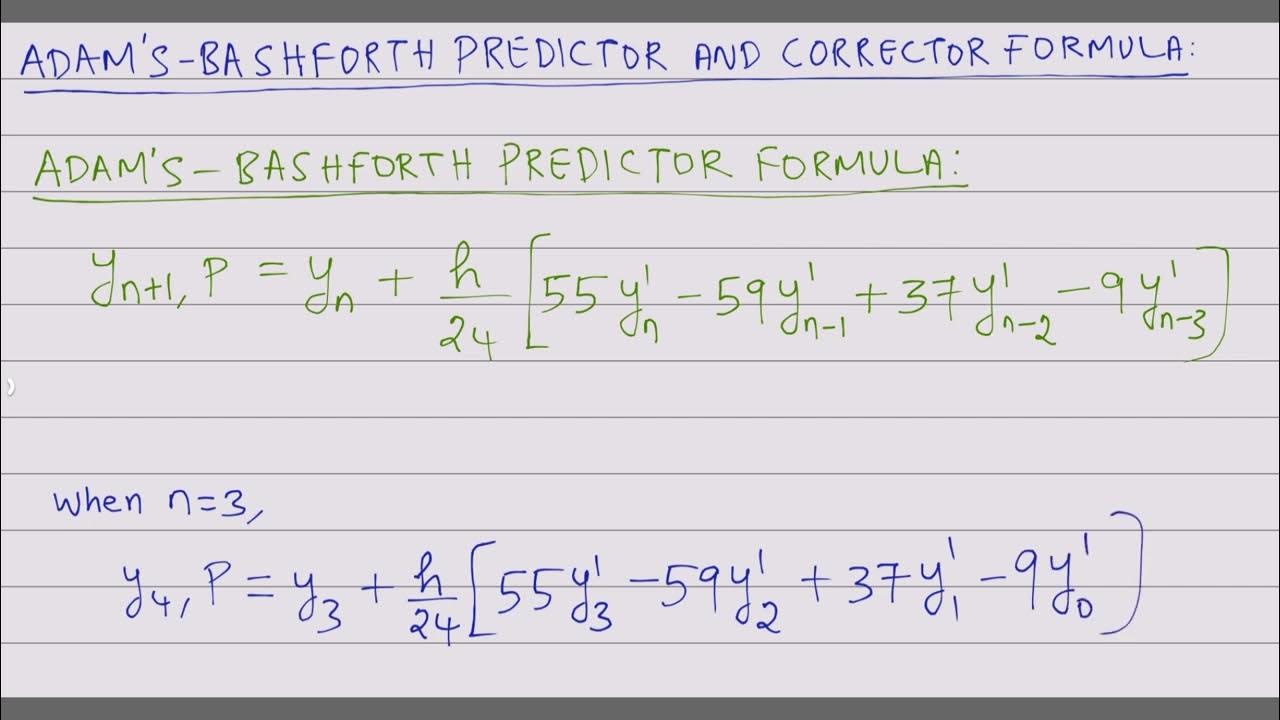 ADAM'S-BASHFORTH PREDICTOR AND CORRECTOR FORMULA:
ADAM'S-BASHFORTH PREDICTOR FORMULA:
yₙ₊₁, P = yₙ + h/24 [55y'ₙ - 59y'ₙ₋₁ + 37y'ₙ₋₂ - 9y'ₙ₋₃]
when n=3,
y₄, P = y₃ + h/24 [55y'₃ - 59y'₂ + 37y'₁ - 9y'₀]